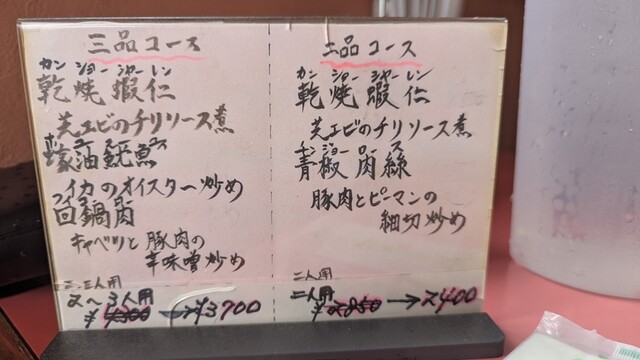 三品コース
カン ショー シャー レン
乾焼蝦仁
芝エビのチリソース煮
蠔油鱿魚
イカのオイスター炒め
回鍋肉
キャベツと豚肉の
辛味噌炒め
二、三人用
2〜3人用
¥4300→¥3700
二品コース
カン ショー シャーレン
乾焼蝦仁
芝エビのチリソース煮
チンジョーロース
青椒肉絲
豚肉とピーマンの
細切炒め
二人用
二人用
¥2850→2400